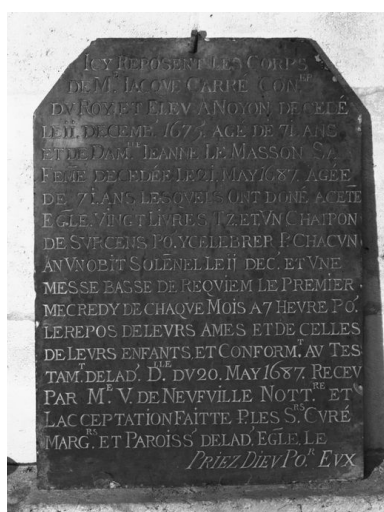 ICY REPOSENT LES CORPS
DE M.ͬ IACQVE CARPE CON.ᴱᴿ
DV ROY ET ELEV A NOYON DECEDÉ
LE II. DECEMB. 1675 AGE DE 71 ANS
ET DE DAM.ᴸᴸᴱ IEANNE LE MASSON SA
FEME DECEDÉE LE 21. MAY 1687. AGÉE
DE 71. ANS. LESQVELS ONT DONÉ A CETE
EGLE. VINGT LIVRES TZ. ET VN CHAPON
DE SVRCENS PO.ͬ Y CELEBRER P. CHACVN
AN VN OBIT SOLĒNEL LE II DEC. ET VNE
MESSE BASSE DE REQVIEM LE PREMIER
MECREDY DE CHAQVE MOIS A 7 HEVRE PO.ͬ
LE REPOS DE LEVRS AMES ET DE CELLES
DE LEVRS ENFANTS. ET CONFORM.ᵀ AV TES
TAM.ᵀ DE LAD.ᴱ D.ᴸᴸᴱ DV 20. MAY 1687. RECEV
PAR M.ᴱ V. DE NEVFVILLE NOTT.ᴿᴱ ET
LACCEPTATION FAITTE P. LES S.ᴿˢ CVRÉ
MARG.ᴿˢ ET PAROISS.ˢ DE LAD.ᴱ EGLE. LE
PRIEZ DIEV PO.ᴿ EVX